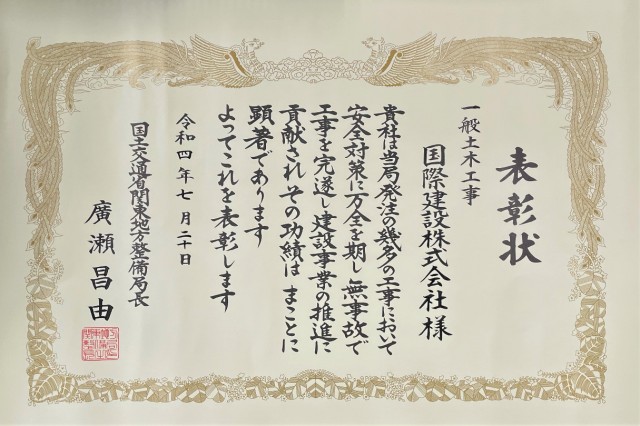 表彰状
一般土木工事
国際建設株式会社様
貴社は当局発注の幾多の工事において
安全対策に万全を期し無事故で
工事を完遂し建設事業の推進に
貢献され その功績は まことに
顕著であります
よってこれを表彰します
令和四年七月二十日
国土交通省関東地方整備局長
廣瀬昌由